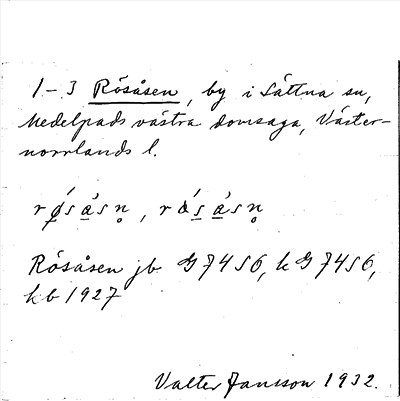 1-3 Rösåsen, by i Sättna sn,
Medelpads västra domsaga, Väster-
norrlands l.
rǿsa̲̓sn̥, rǿs̲a̲̓sn̥
Rösåsen jb G7456, kG7456,
kb 1927
Valter Jansson 1932.